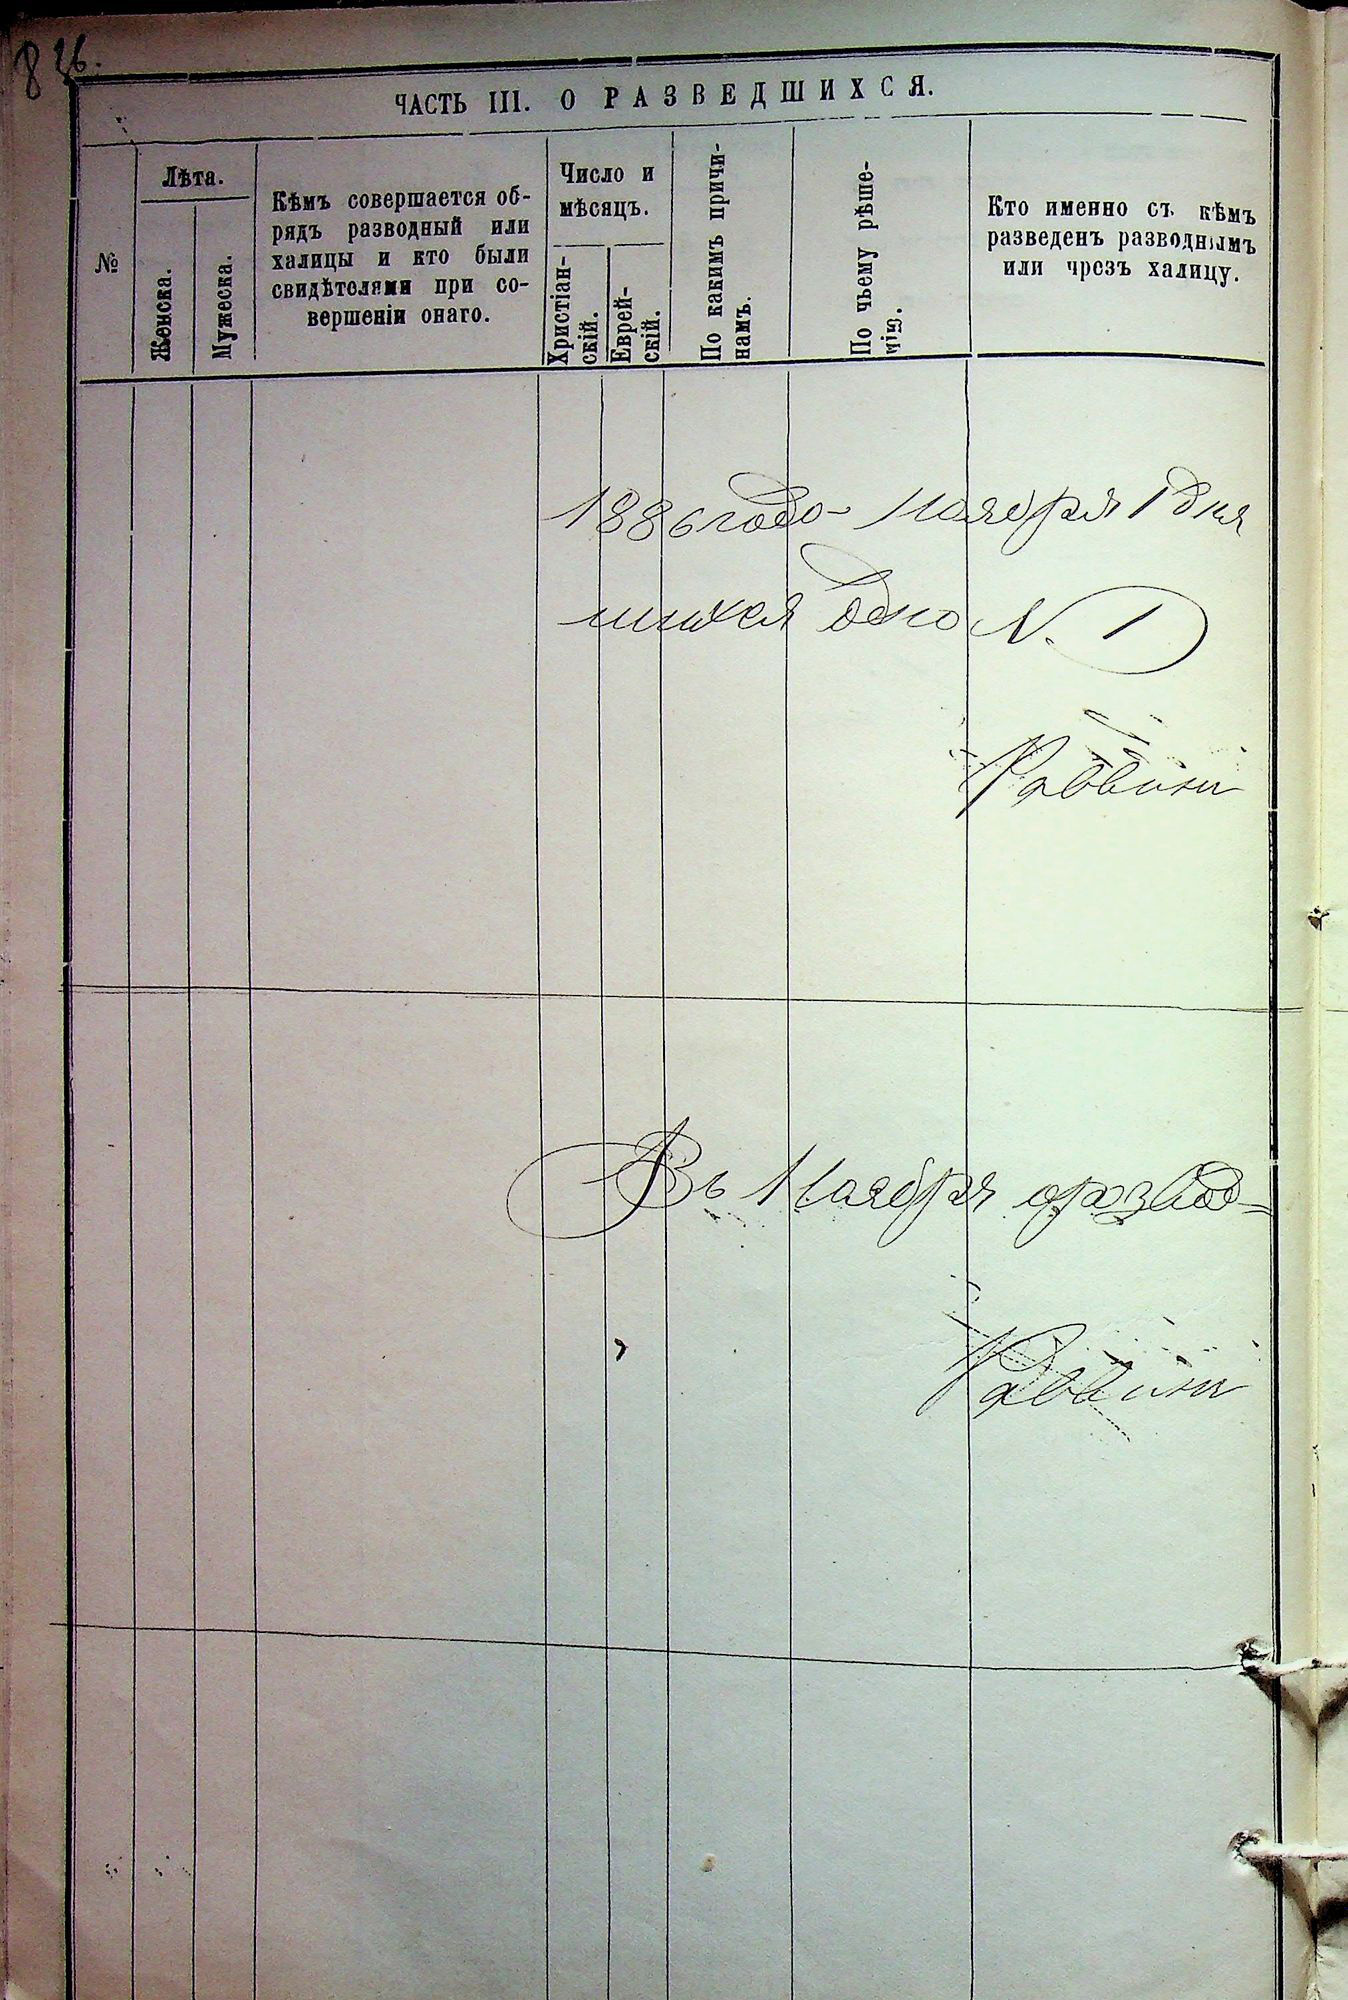 836.
ЧАСТЬ III. О РАЗВЕДШИХСЯ.
№
Лѣта.
Женска.
Мужеска.
Кѣмъ совершается об-
рядъ разводный или
халицы и кто были
свидѣтелями при со-
вершеніи онаго.
Число и
мѣсяцъ.
Христіан-
скій.
Еврей-
скій.
По какимъ причи-
намъ.
По чьему рѣше-
нію.
Кто именно съ кѣмъ
разведенъ разводнымъ
или чрезъ халицу.
1886 года Ноября 1 дня
шихся одно N. 1
Раввинъ
Въ Ноября развод=
Раввинъ